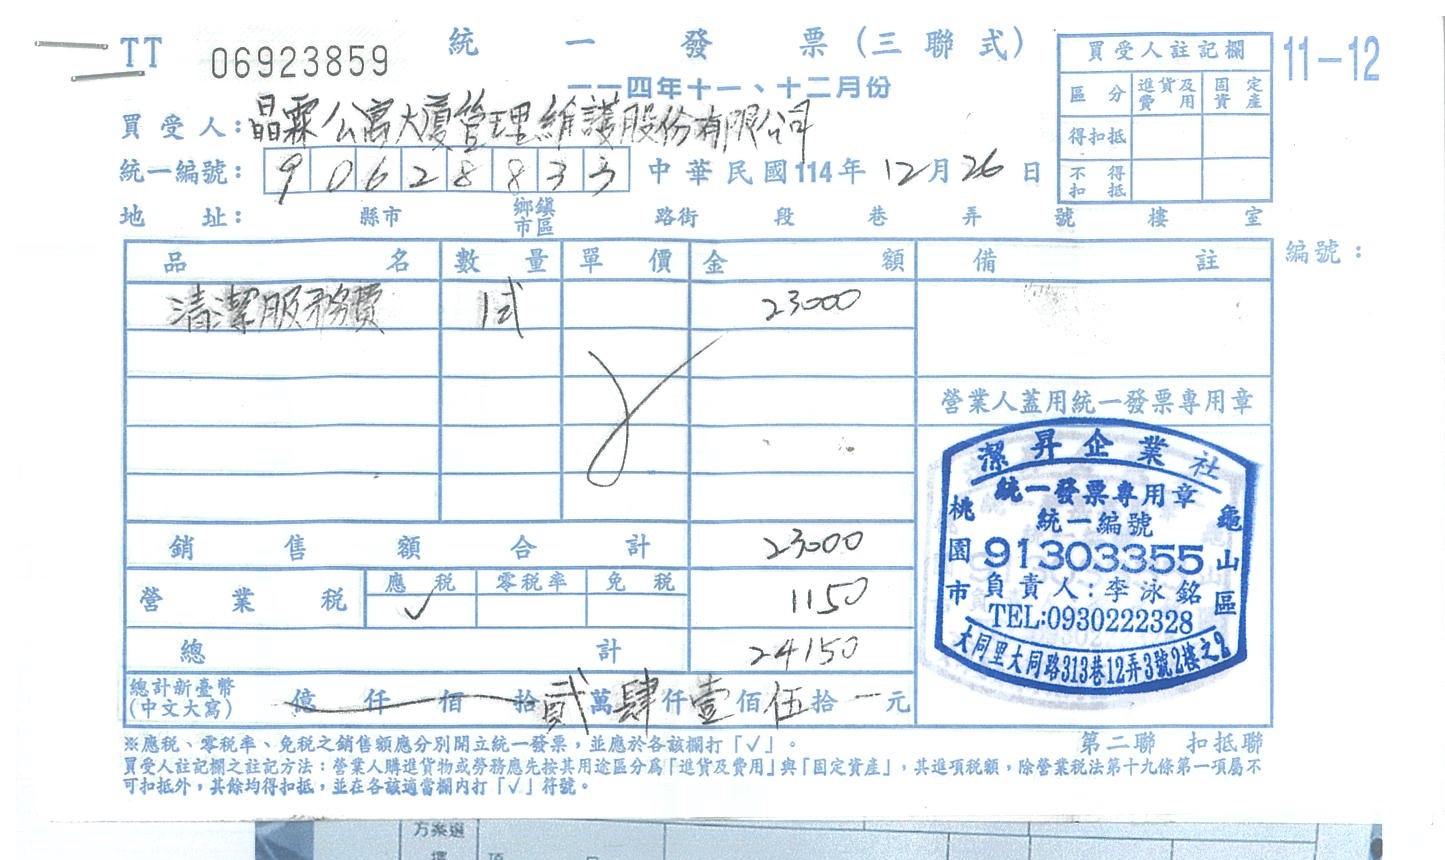 TT 06923859 統一發票(三聯式) 11-12
一一四年十一、十二月份
買受人註記欄
區分 進貨及費用 固定資產
得扣抵
不得扣抵
買受人:晶霖公寓大廈管理維護股份有限公司
統一編號: 90628833 中華民國114年12月26日
地址: 縣市 鄉鎮市區 路街 段 巷 弄 號 樓 室
品名 數量 單價 金額 備註 編號:
清潔服務費 1式 23000
營業人蓋用統一發票專用章
潔昇企業社
統一發票專用章
統一編號
91303355
負責人:李泳銘
TEL:0930222328
桃園市 龜山區
大同里大同路313巷12弄3號2樓之2
銷售額合計 23000
營業稅 應稅 ✓ 零稅率 免稅 1150
總計 24150
總計新臺幣(中文大寫) 億 仟 佰 拾貳萬肆仟壹佰伍拾一元
※應稅、零稅率、免稅之銷售額應分別開立統一發票,並應於各該欄打「✓」。
第二聯 扣抵聯
買受人註記欄之註記方法:營業人購進貨物或勞務應先按其用途區分為「進貨及費用」與「固定資產」,其進項稅額,除營業稅法第十九條第一項屬不
可扣抵外,其餘均得扣抵,並在各該適當欄內打「✓」符號。
方案選